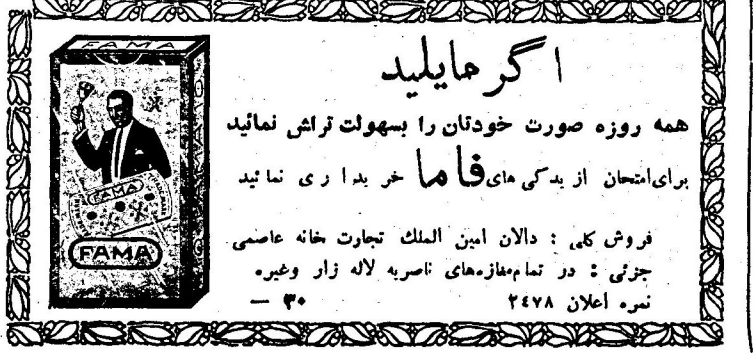 FAMA
FAMA
FAMA
اگر مایلید
همه روزه صورت خودتان را بسهولت تراش نمائید
برای امتحان از یدکی های فاما خریداری نمائید
فروش کلی : دالان امین الملك تجارت خانه عاصمی
جزئی : در تمام مغازه‌های ناصریه لاله زار وغیره
نمره اعلان ۲٤۷۸ ۳۰ —